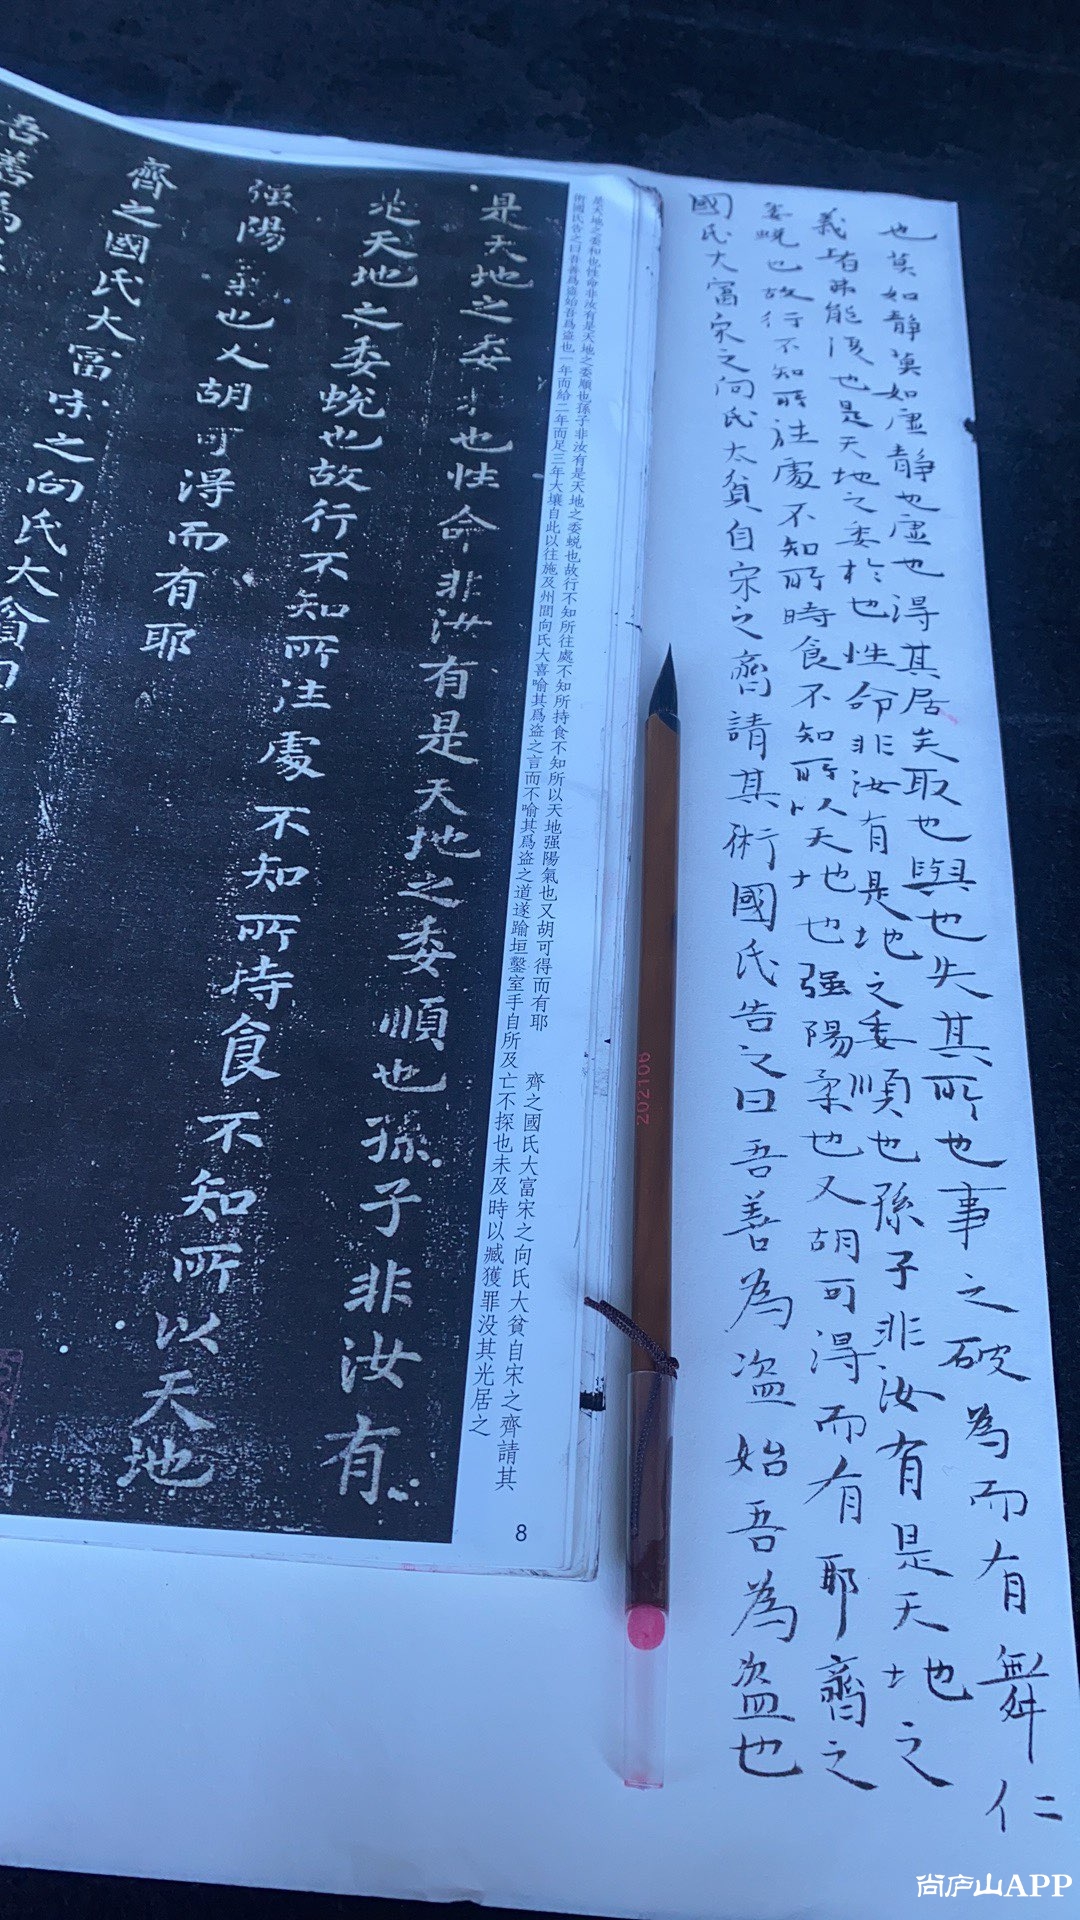 也莫如靜莫如虛靜也虛也得其居矣取也與也失其所也事之破為而有舞仁
義者弗能復也是天地之委於也性命非汝有是地之委順也孫子非汝有是天地之
委蛻也故行不知所往處不知所時食不知所以天地也强陽柔也又胡可得而有耶齊之
國氏大富宋之向氏大貧自宋之齊請其術國氏告之曰吾善為盜始吾為盜也
是天地之委和也性命非汝有是天地之委順也孫子非汝有是天地之委蛻也故行不知所往處不知所持食不知所以天地强陽氣也又胡可得而有耶 齊之國氏大富宋之向氏大貧自宋之齊請其
術國氏告之曰吾善爲盜始吾爲盜也一年而給二年而足三年大壤自此以往施及州閭向氏大喜喻其爲盜之言而不喻其爲盜之道遂踰垣鑿室手自所及亡不探也未及時以臧獲罪没其光居之
8
是天地之委也性命非汝有是天地之委順也孫子非汝有
是天地之委蛻也故行不知所往處不知所持食不知所以天地
强陽也又胡可得而有耶
齊之國氏大富宋之向氏大貧自
吾善爲
202106
尚庐山APP